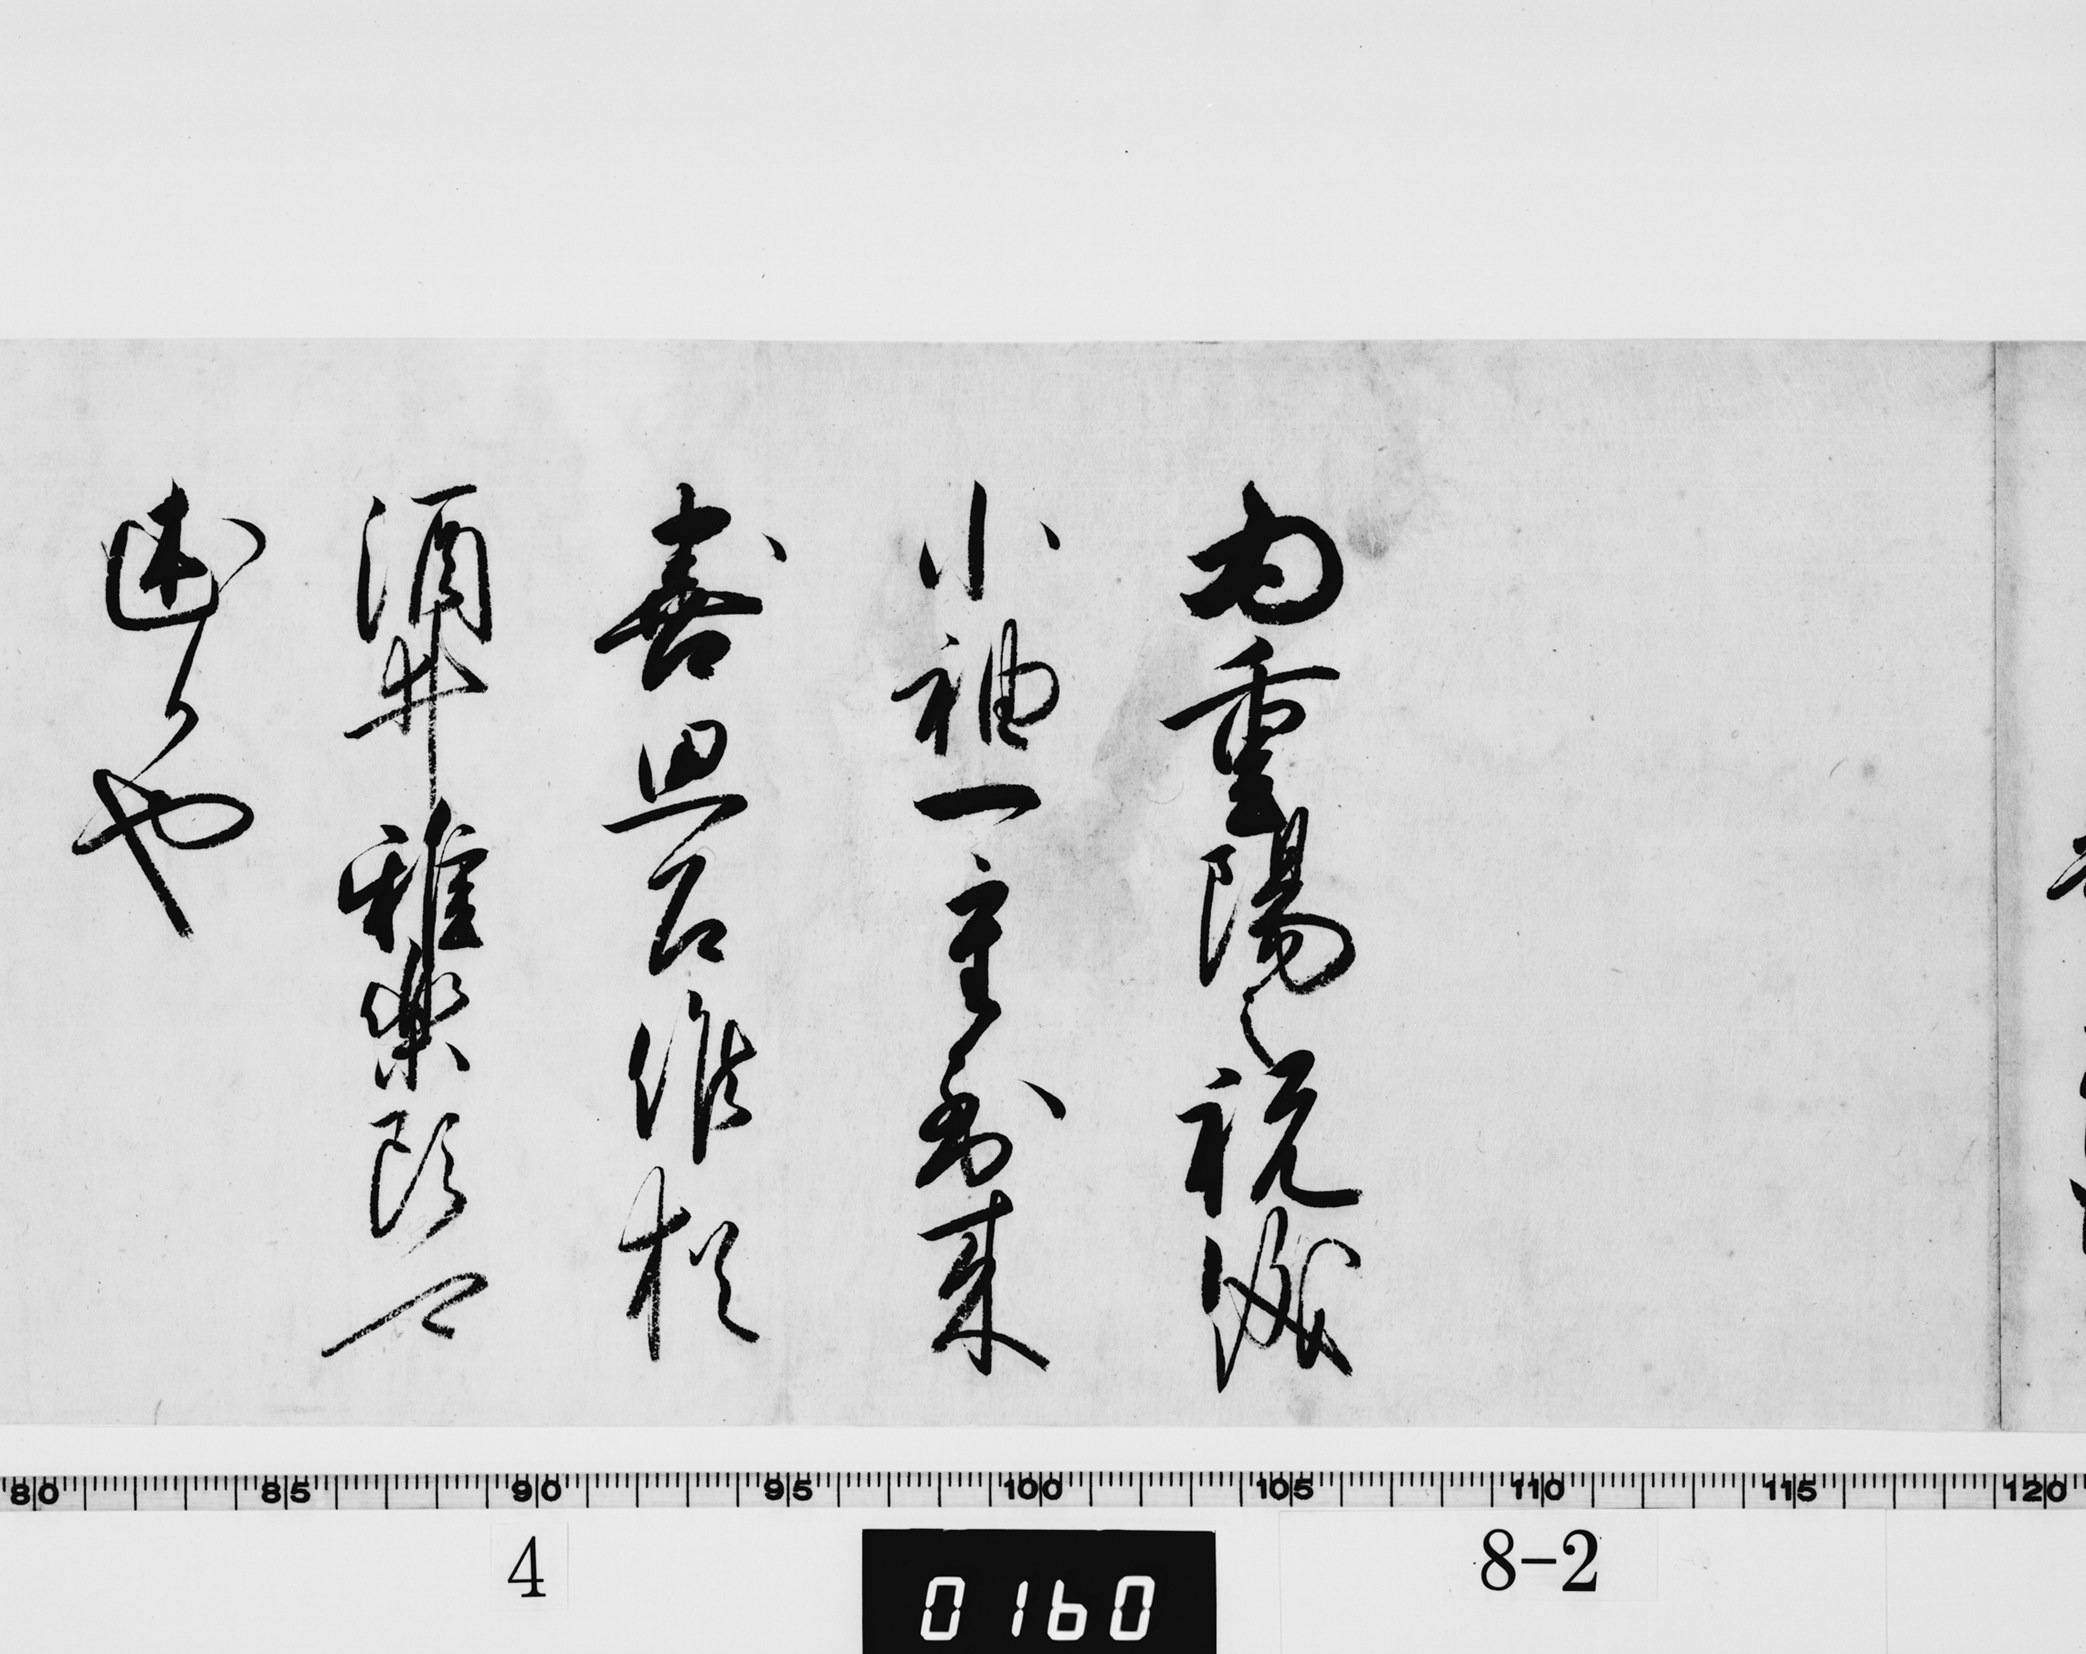 為重陽之祝儀
小袖一重到来
喜思召候猶
酒井雅楽頭可
述候也
80 85 90 95 100 105 110 115 120
4
0160
8-2